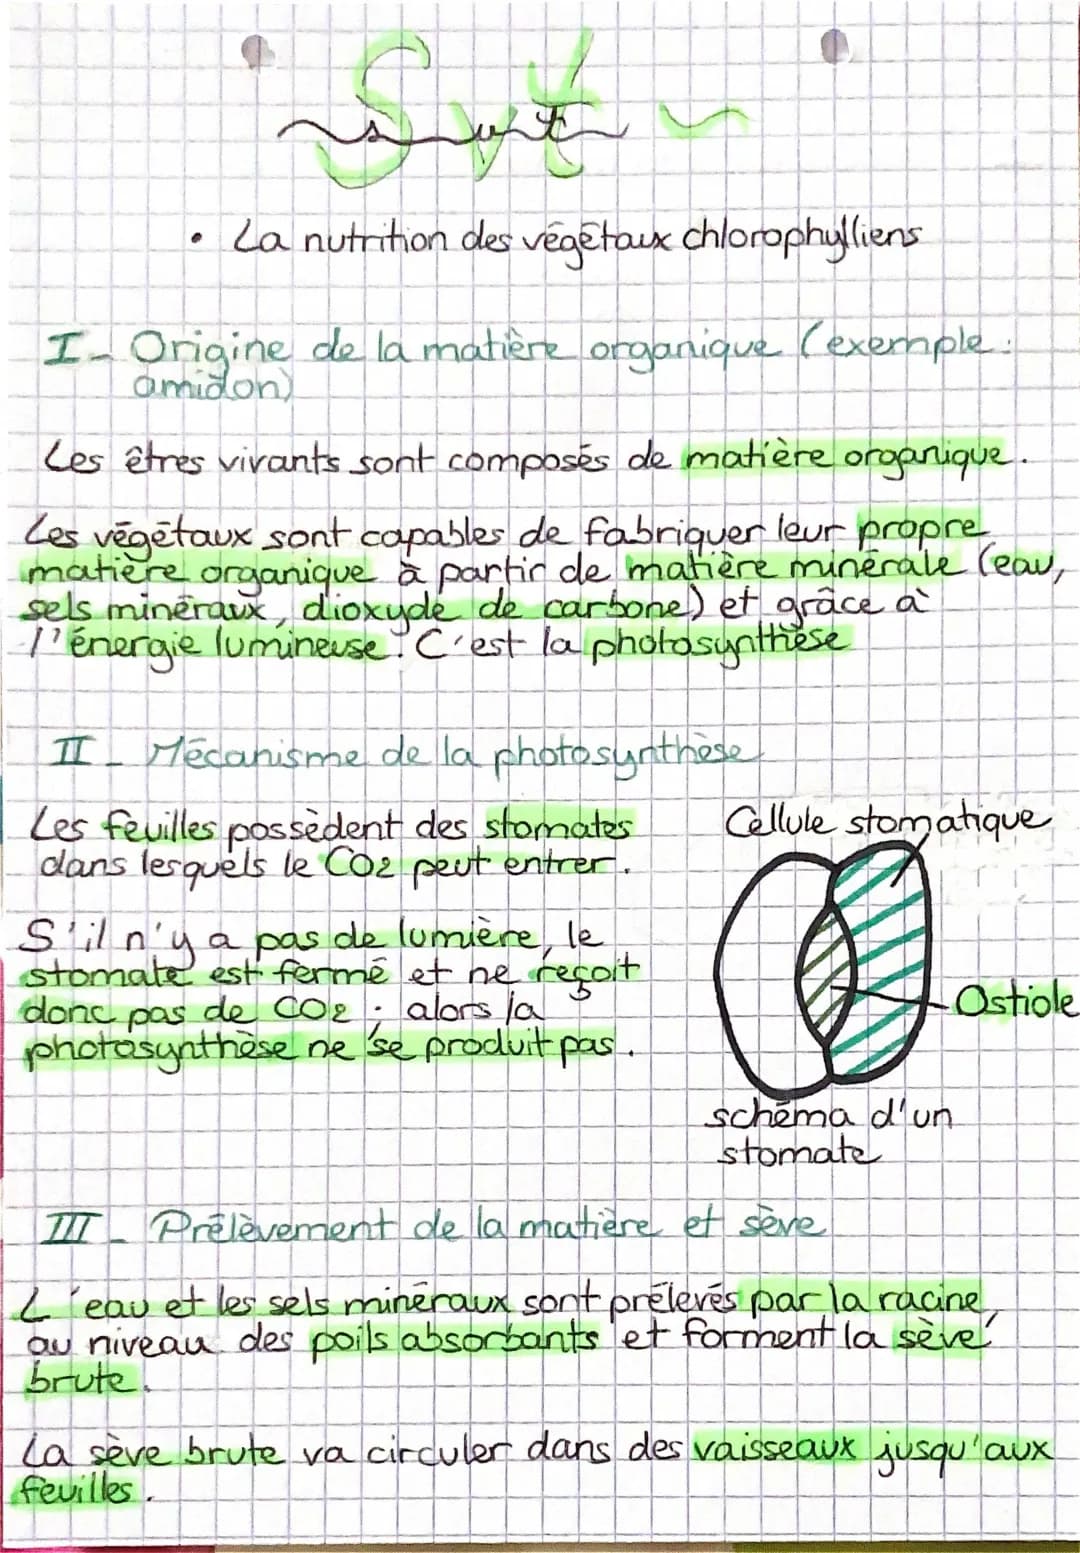 Svt
svt
• La nutrition des végétaux chlorophylliens
I - Origine de la matière organique (exemple :
amidon)
Les êtres vivants sont composés de matière organique.
Les végétaux sont capables de fabriquer leur propre
matière organique à partir de matière minérale (eau,
sels minéraux, dioxyde de carbone) et grâce à
l'énergie lumineuse. C'est la photosynthèse
II - Mécanisme de la photosynthèse
Les feuilles possèdent des stomates
dans lesquels le CO2 peut entrer.
S'il n'y a pas de lumière, le
stomate est fermé et ne reçoit
donc pas de CO2 ; alors la
photosynthèse ne se produit pas.
Cellule stomatique
Ostiole
schéma d'un
stomate
III - Prélèvement de la matière et sève
L'eau et les sels minéraux sont prélevés par la racine,
au niveau des poils absorbants et forment la sève
brute.
La sève brute va circuler dans des vaisseaux jusqu'aux
feuilles.